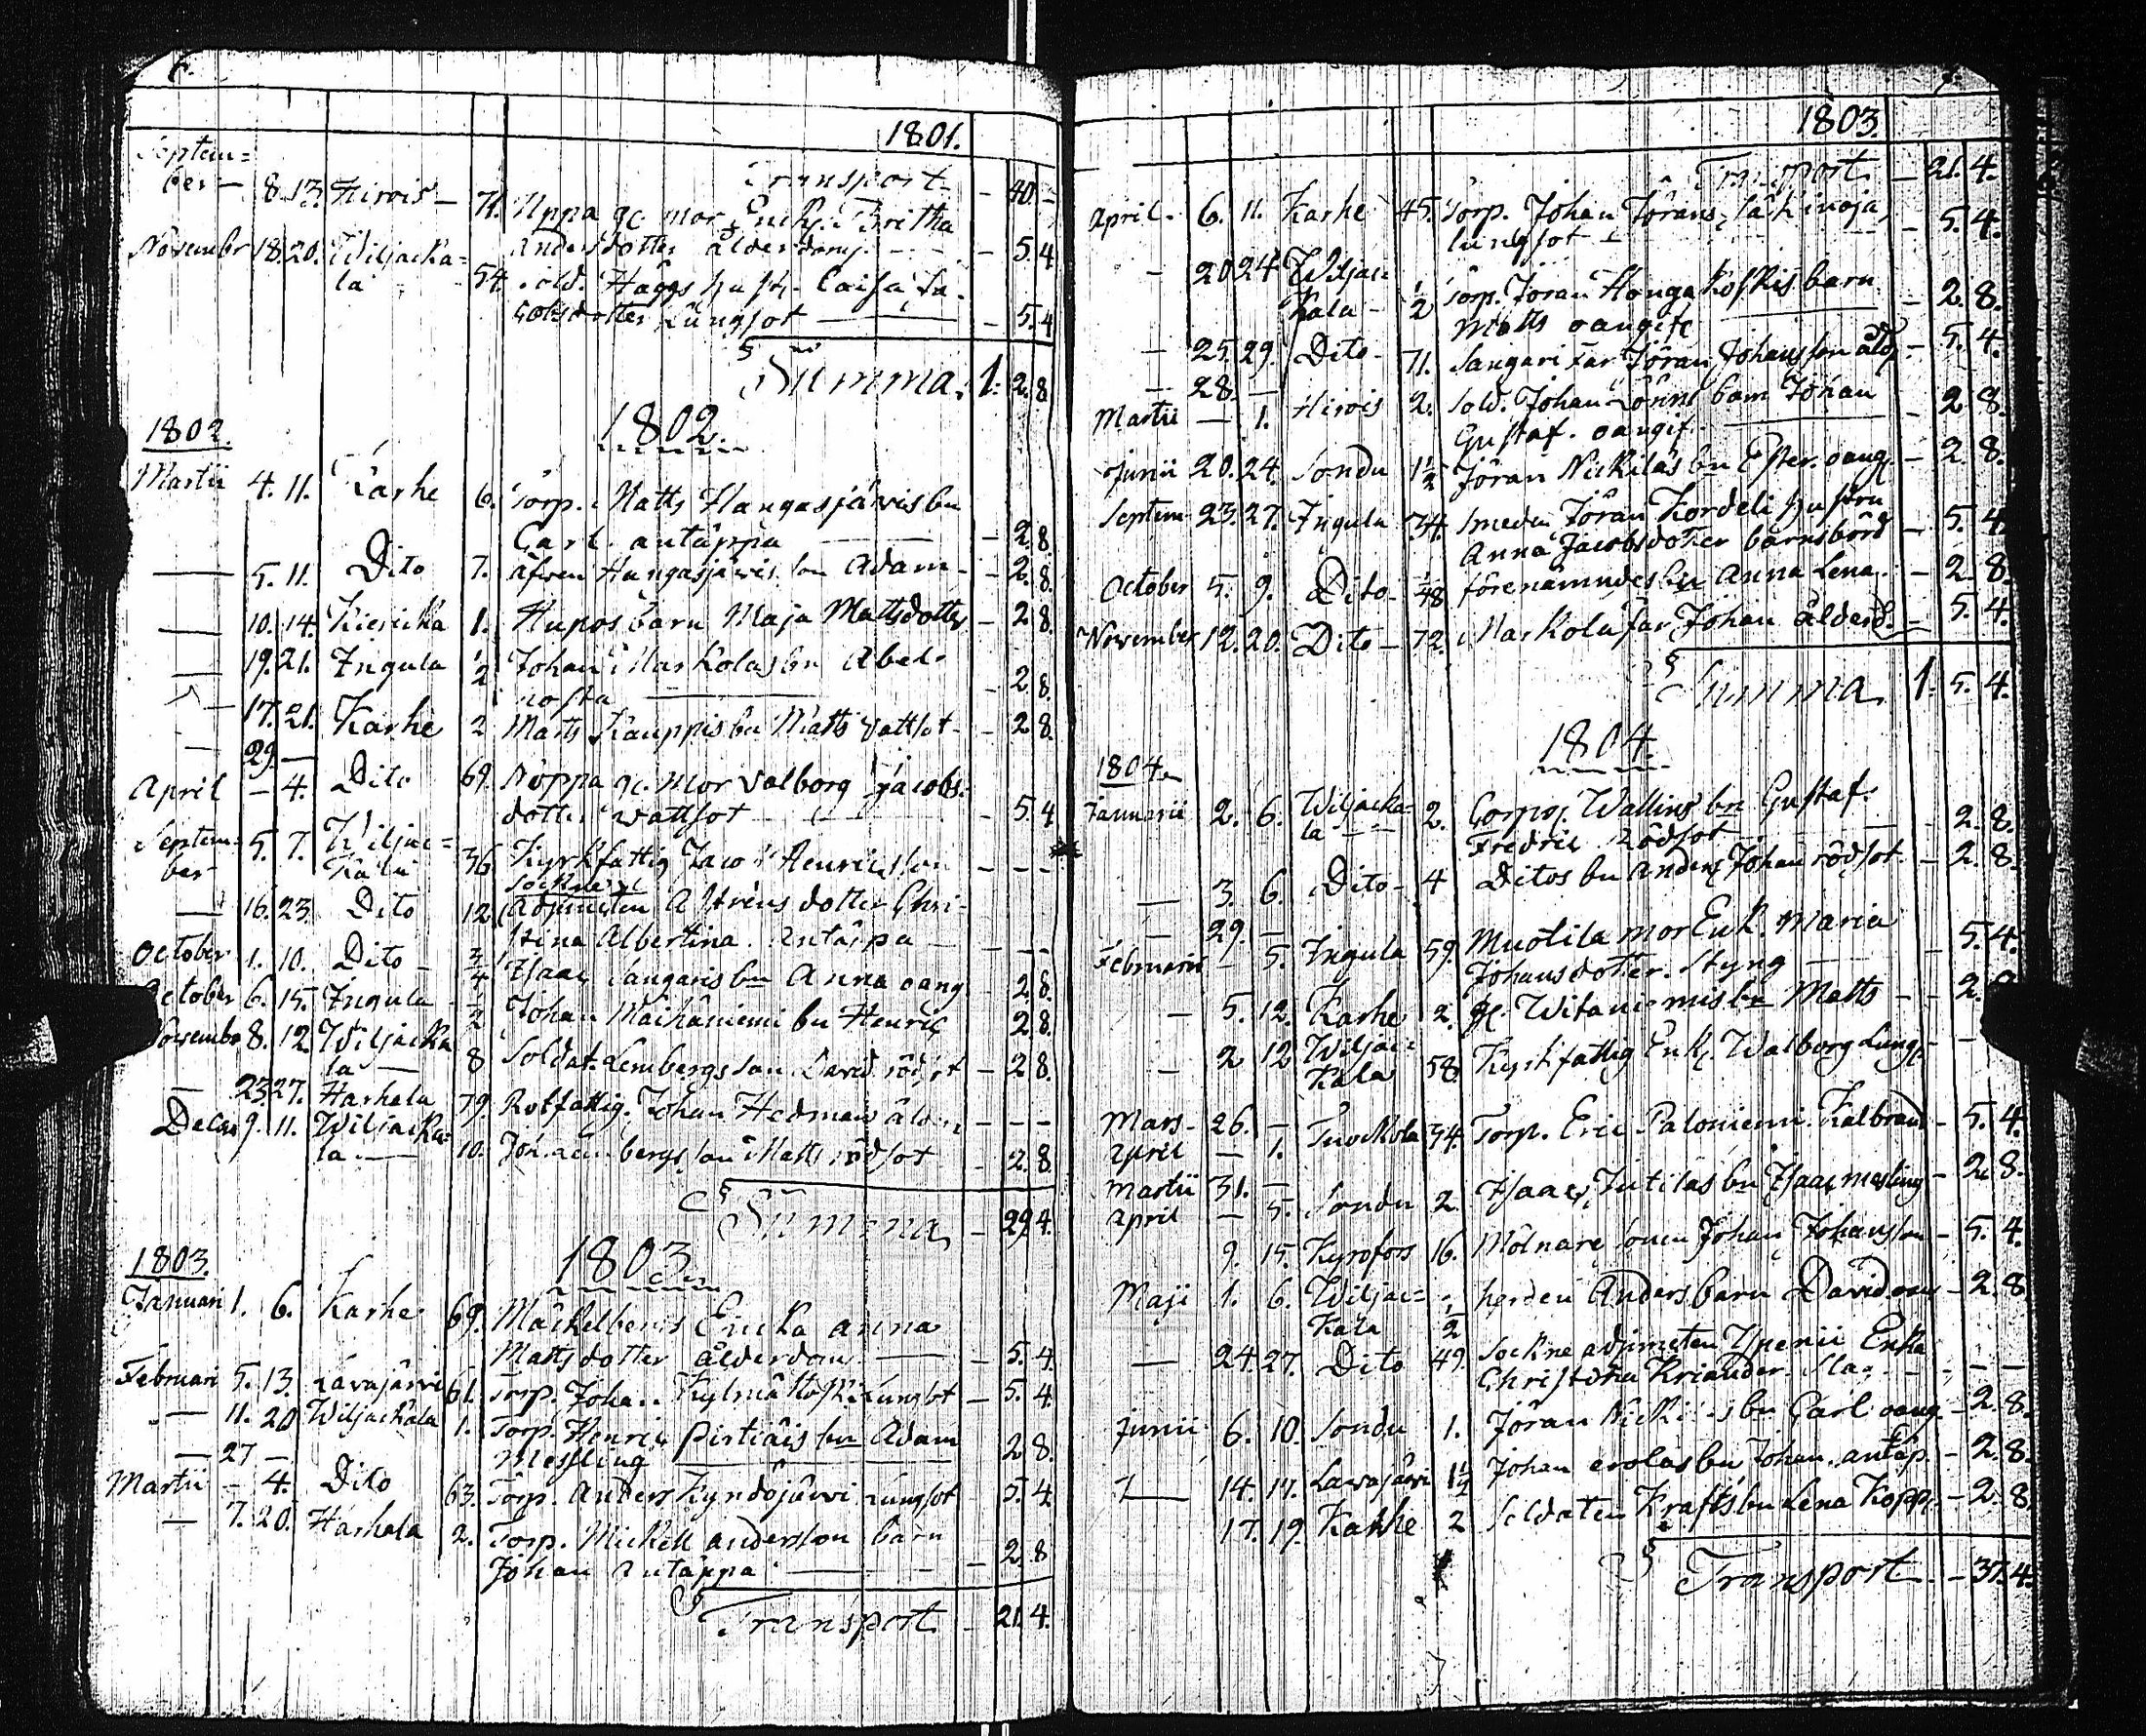 6.
1801.
Septem=
ber — 8. 13. Hirois — 71. Transport — 40. —
Uppa gc. mor Enck. Britha
Andersdotter ålderdom. — 5. 4
Novembr 18. 20. Wiljacka= 54. Sold. Häggs hust. Caisa Ja=
la cobsdotter Lungsot — 5. 4
Summa. 1. 2. 8
1802. 1802.
Martii 4. 11. Karhe 6. Torp. Matts Hangasjärvis bn
Carl. antäppa — 2. 8.
— 5. 11. Dito 7. äfven Hangasjärvis bn Adam — 2. 8.
— 10. 14. Kiericka 1. Hupos barn Maja Mattsdotter — 2 8.
— 19. 21. Ingula 1/2 Johan Markolas bn Abel
hosta — 2 8.
— 17. 21. Karhe 2 Matts Kauppis bn Matts vattsot — 2 8.
— 29. —
April — 4. Dito 69. Röppa gc. mor Valborg Jacobs=
dotter vattsot — 5. 4
Septem= 5. 7. Wiljac= 36 Kyrkfattig Jacob Henricsson
ber kala — — —
— 16. 23. Dito 12. Sockne
Adjuncten Astréns dotter Chri=
stina Albertina. Antäppa — — —
October 1. 10. Dito — 3/4 Isaac Sangaris bn Anna oang. 2 8.
October 6. 15. Ingula 1/2 Johan Maihäniemi bn Henric 2 8.
Novembr 8. 12. Wiljacka
la — 8 Soldat Lembergs son David rödsot — 2 8.
— 23. 27. Harhala 79. Rotfattig. Johan Hedman ålder — — —
Decem 9. 11. Wiljacka=
la — 10. Joh. Lembergs son Matts rödsot — 2. 8
Summa — 29. 4.
1803. 1803
Januari 1. 6. Karhe 69. Mäckelbergs Encka Anna
Mattsdotter ålderdom. — 5. 4.
Februari 5. 13. Lavajärvi 61. Torp. Johan Kylmäkoski Lungsot — 5. 4
— 11. 20 Wiljackala 1. Torp. Henric Pirtiäis bn Adam
Messling — 2 8.
— 27 —
Martii — 4. Dito 63. Torp. Anders Kyndöjärvi Lungsot — 5. 4
— 7. 20. Harhala 2. Torp. Mickell Andersson barn
Johan Antäppa — 2 8
Transport — 21. 4.
7.
1803.
Transport — 21. 4.
April. 6. 11. Karhe 45. Torp. Johan Jörans,
lungsot — 5. 4.
— 20 24 Wiljac=
kala — 1/2 Torp. Jöran Hongakoskis barn
Matts oangift — 2. 8.
— 25. 29. Dito 71. Sangari Far Jöran Johansson åld. — 5. 4.
— 28. —
Martii — 1. Hirois 2. Sold. Johan Lönns barn Johan
Gustaf. oangif. — 2 8.
Junii 20. 24. Sondu 1 1/2 Jöran Nickilas bn Ester. oang. — 2. 8.
Septem 23. 27. Ingula 34. Smeden Jöran Kordeli hustru
Anna Jacobsdotter barnsbörd — 5. 4
October 5. 9. Dito 1/48 förenämndes bn Anna Lena. — 2. 8.
November 12. 20. Dito — 72. Markola far Johan ålderd. — 5. 4.
Summa 1. 5. 4.
1804. 1804.
Januarii 2. 6. Wiljacka=
la — 2. Corpor. Wallins bn Gustaf
Fredric Rödsot — 2. 8.
— 3. 6. Dito — 4 Ditos bn Anders Johan rödsot — 2. 8.
— 29. —
Februarii 5. Ingula 59. Muotila mor Enk. Maria
Johansdotter. Styng — 5. 4.
— 5. 12. Karhe 2. gc. Witaniemis bn Matts — 2.
— 2 12 Wiljac=
kala 58. Kyrkfattig Enk. Walborg Lung. — —
Mars — 26. —
April — 1. Tuockola 34. Torp. Eric Paloniemi. Kalbrand — 5. 4.
Martii 31. —
April — 5. Sondu 2. Isaac Jutilas bn Isaac mesling — 2. 8.
9. 15. Kyrofors 16. Mölnare sonen Johan Johansson — 5. 4.
Maji 1. 6. Wiljac=
kala 1/2 herden Anders barn David oang — 2. 8.
— 24. 27. Dito 49. Sockne adjuncten Ypenii Enka
Christina Kriander. Slag — —
Junii 6. 10. Sondu 1. Jöran Nickilas bn Carl oang. — 2. 8.
— 14. 17. Lawajärwi 1 1/2 Johan erolas bn Johan. antäp. — 2. 8.
17. 19. Karhe 2 Soldaten Krafts bn Lena Kopp. — 2. 8.
Transport — 37. 4.